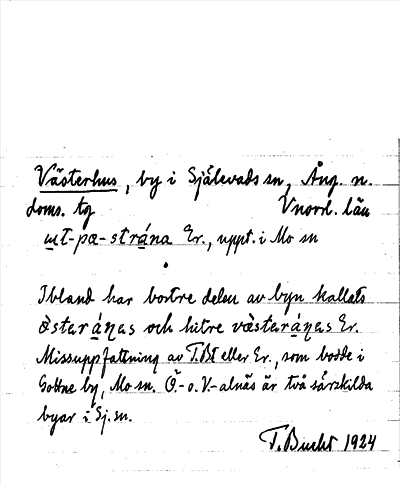 Västerhus, by i Själevads sn, Ång. n.
doms. tg Vnorrl. län
ut-pœ-strána Er., uppt. i Mo sn
Ibland har bortre delen av byn kallats
östaráṇas och hitre västaráṇas Er.
Missuppfattning av T.Bt eller Er., som bodde i
Gottne by, Mo sn. Ö.- o. V.-alnäs är två särskilda
byar i Sj. sn.
T. Bucht 1924